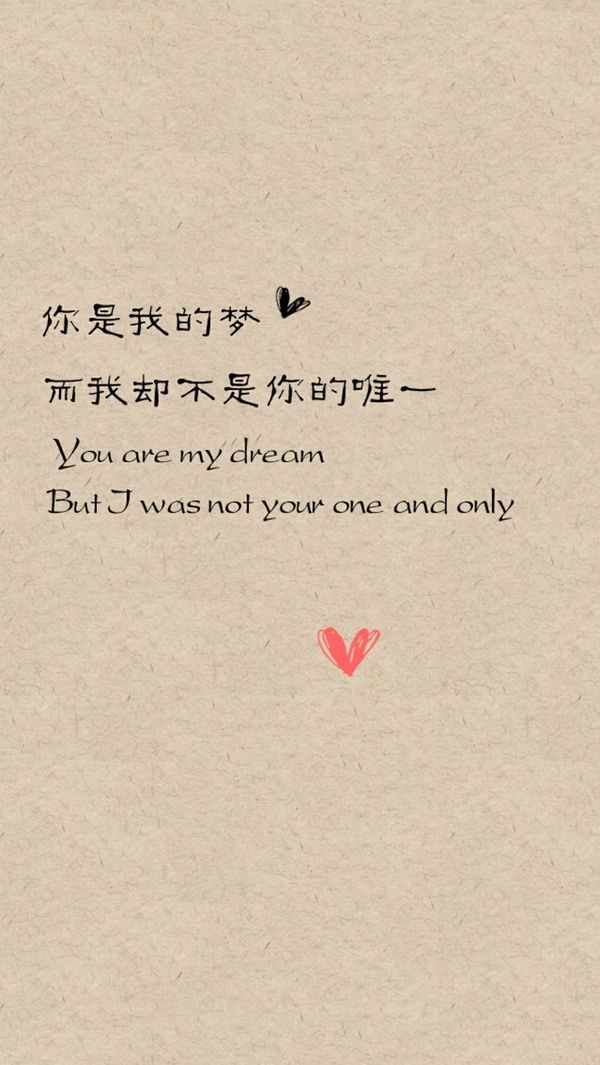 你是我的梦
而我却不是你的唯一
You are my dream
But I was not your one and only